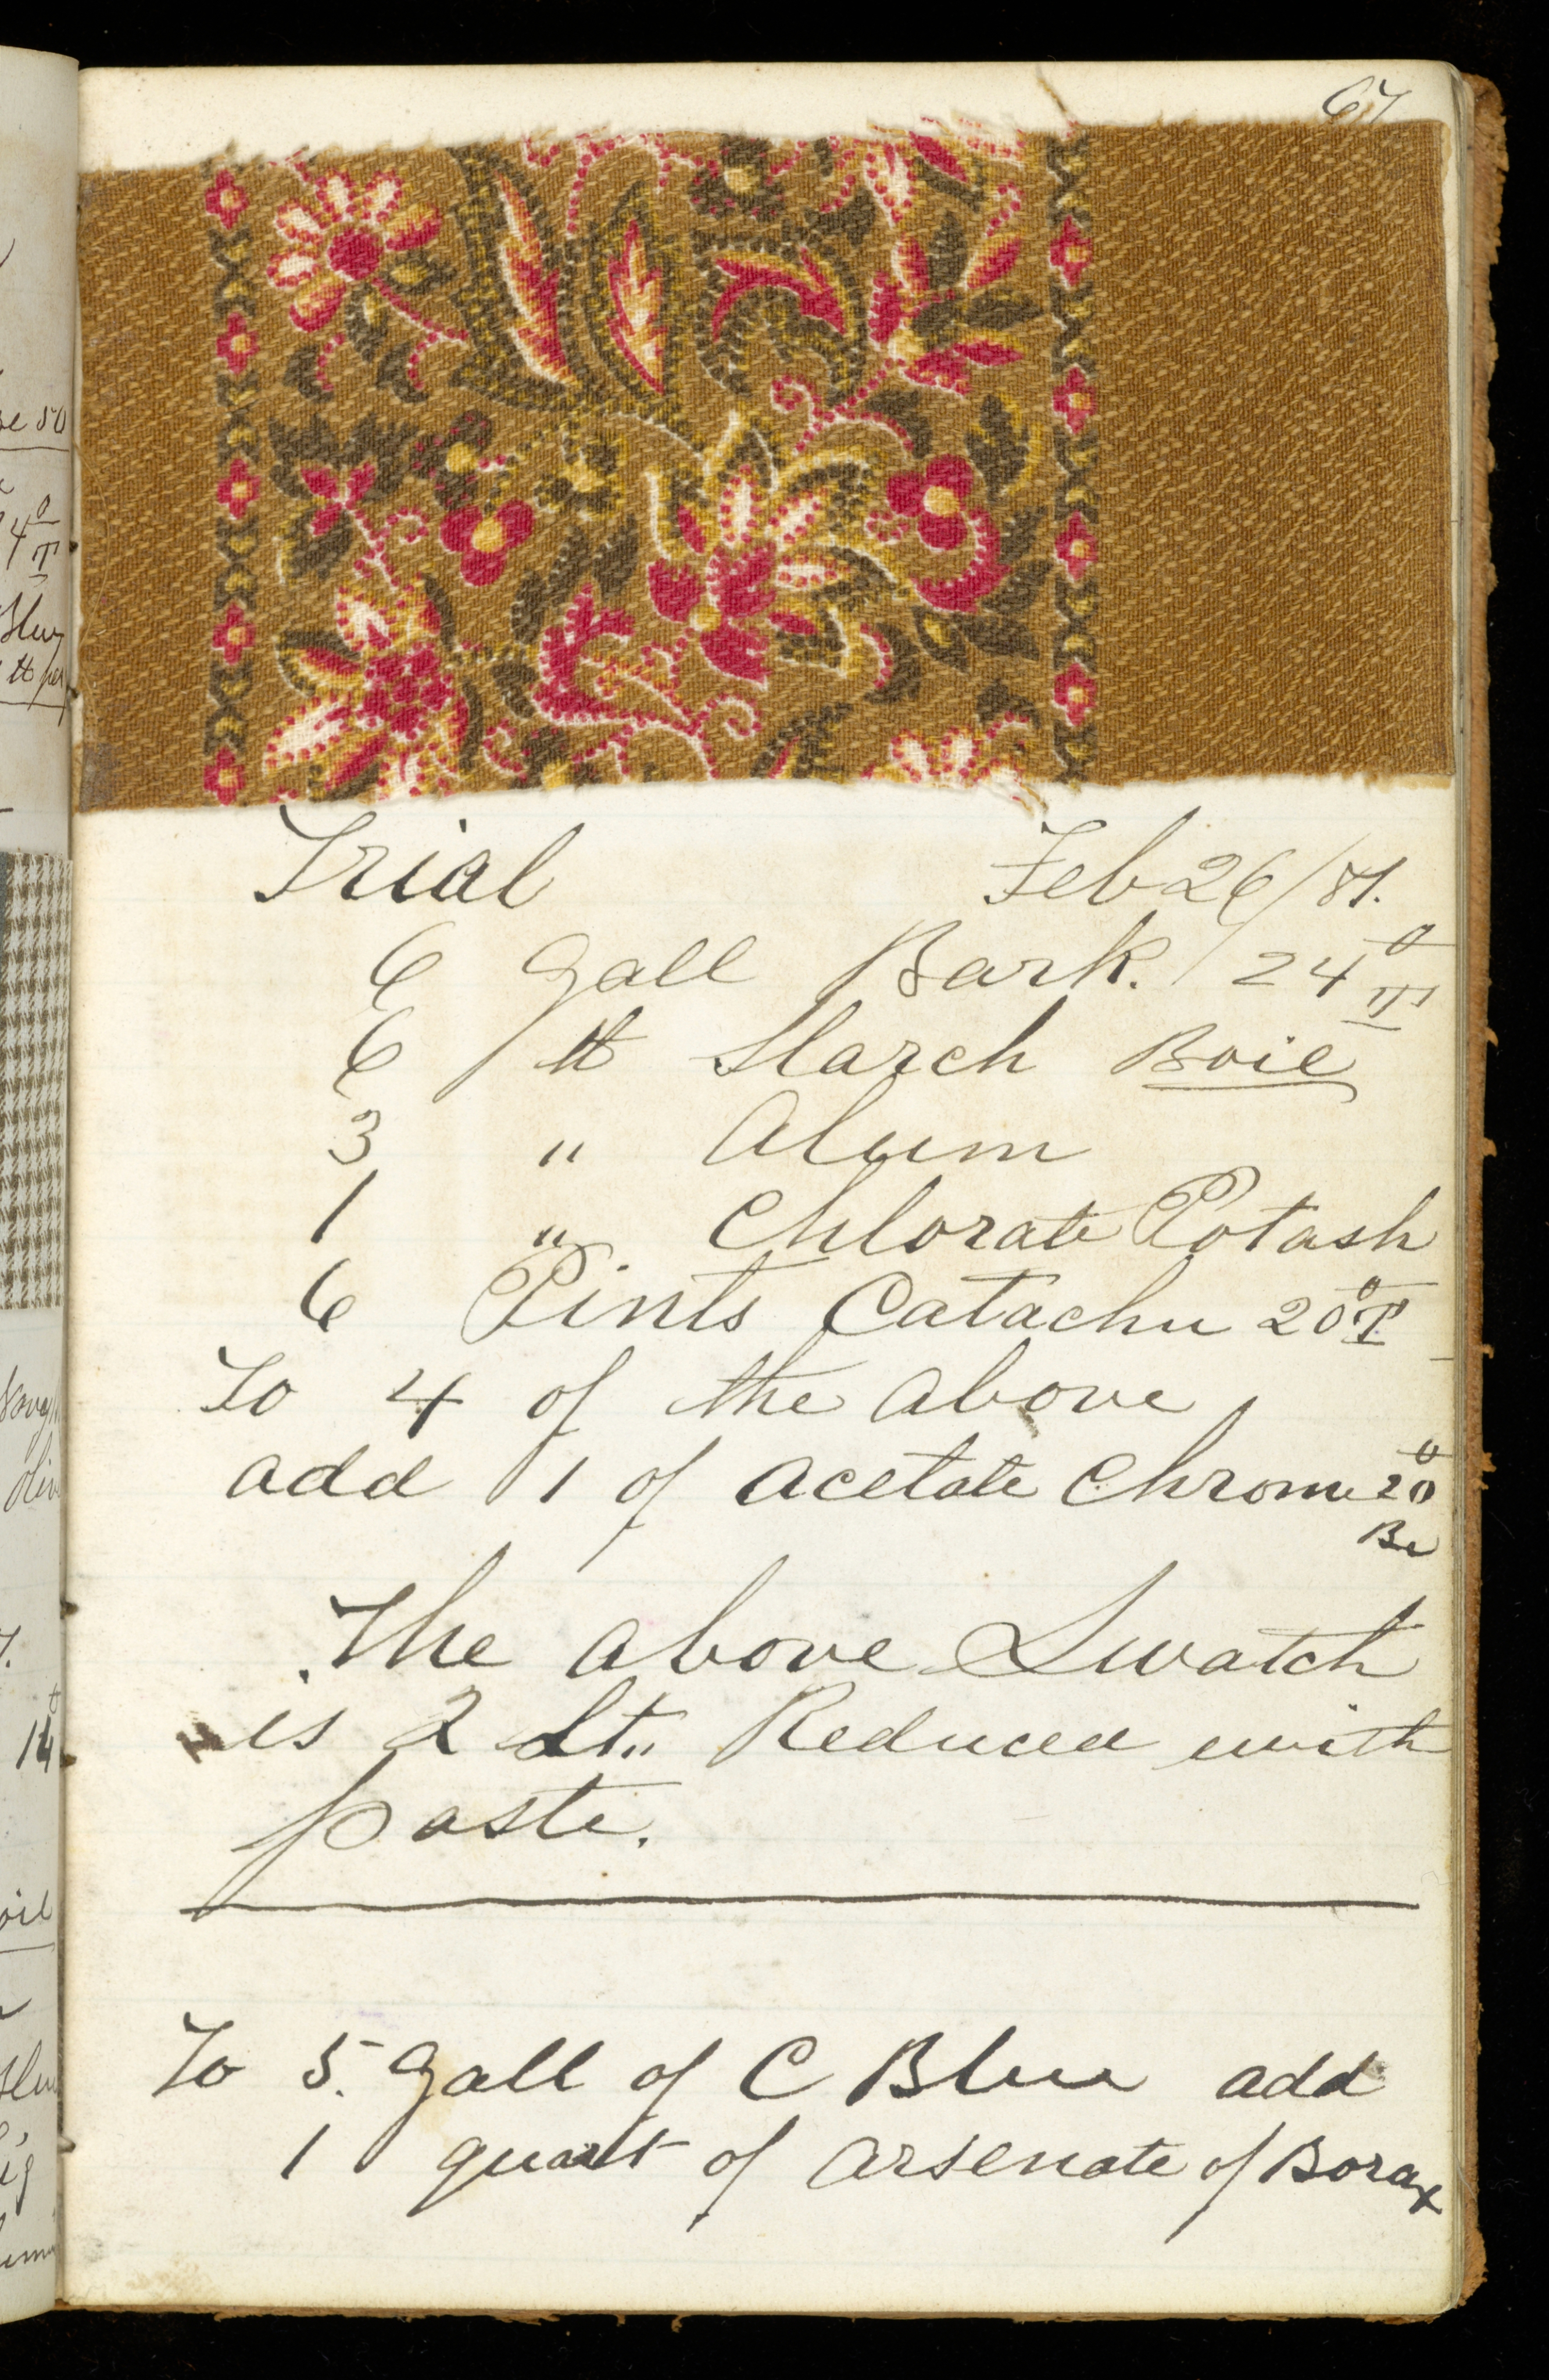 67
Trial Feb 26/81.
6 Gall Bark. 24 °T
6 lb Starch Boil
3 " Alum
1 " Chlorate Potash
6 Pints Catachu 20 °T
To 4 of the above
add 1 of acetate Chrome 20°
Be
The above Swatch
is 2 Reduced with
paste.
To 5 Gall of C Blue add
1 quart of arsenate of Borax